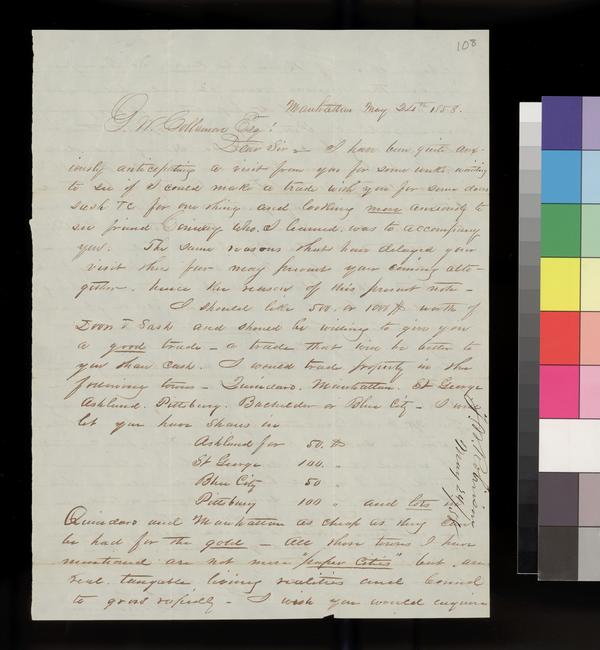 108
Manhattan May 24th 1858.
G. W. Collamore Esq!
Dear Sir - I have been quite anx-
iously anticipating a visit from you for some weeks, wanting
to see if I could make a trade with you for some doors
sash &c for one thing and looking more anxiously to
see friend Conway who I learned was to accompany
you. The same reasons that have delayed your
visit thus far may prevent your coming alto-
gether. hence the reason of this present note -
I should like 500. or 1000$ worth of
Doors & Sash and should be willing to give you
a good trade - a trade that will be better to
you than cash. I would trade property in the
following towns - Quindaro. Manhattan. St George
Ashland. Pittsburg. Bachelder or Blue City - I will
let you have shares in
Ashland for 50. $
St George 100. "
Blue City 50 "
Pittsburg 100 " and lots in
Quindaro and Manhattan as cheap as they can
be had for the gold - All those towns I have
mentioned are not mere "paper Cities" but are
real. tangable living realities and bound
to grow rapidly - I wish you would enquire
May 24, 1858